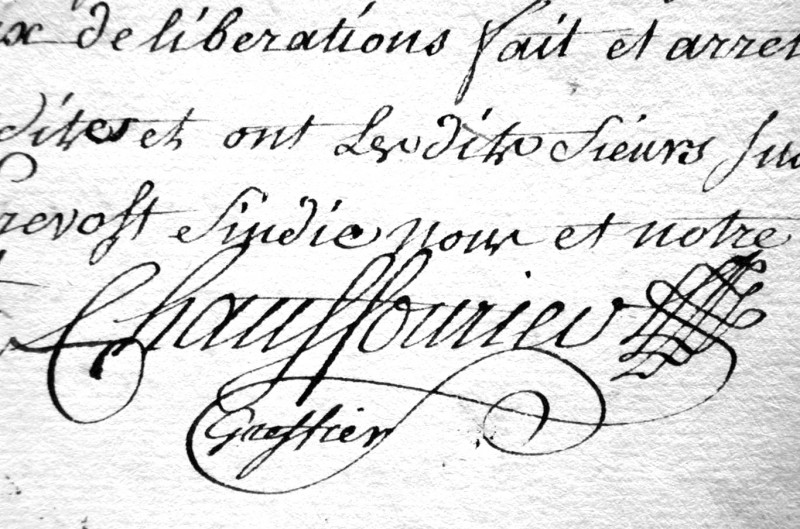 ux deliberations fait et arret
dites et ont Les dits sieurs
revost sindic nous et notre
Chauffourier
Greffier